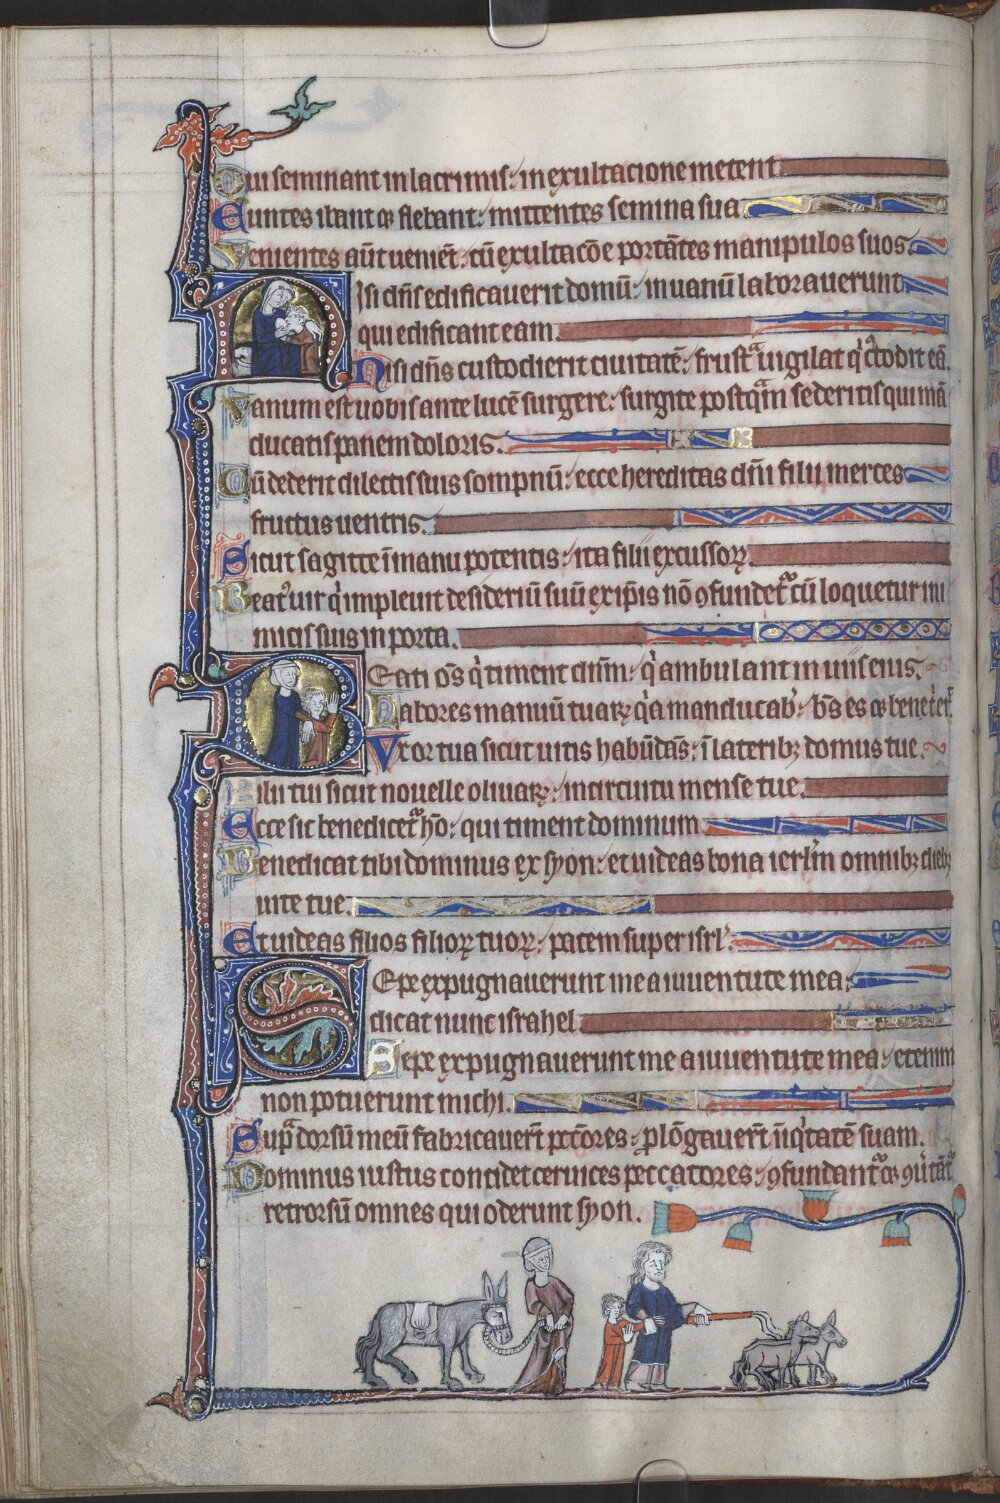 Qui seminant in lacrimis: in exultacione metent.
Euntes ibant ⁊ flebant: mittentes semina sua.
Venientes aũt ueniẽt: cũ exultacõe portãtes manipulos suos.
Nisi dñs edificauerit domũ: in uanũ laborauerunt
qui edificant eam.
Nisi dñs custodierit ciuitatẽ: frustᵃ uigilat qͥ custodit eã.
Vanum est uobis ante lucẽ surgere: surgite postqᵃm sederitis qui mã
ducatis panem doloris.
Cũ dederit dilectis suis sompnũ: ecce hereditas dñi filii merces
fructus uentris.
Sicut sagitte ĩ manu potentis: ita filii excussoꝝ.
Beatꝰ uir qͥ impleuit desideriũ suũ ex ip̃is nõ ꝯfundet᷑ cũ loquetur ini
micis suis in porta.
Beati oẽs qͥ timent dñm: qͥ ambulant in uiis eius.
Labores manuũ tuaꝝ qͥa manducabꝰ: bẽs es ⁊ bene tͥ erꝰ.
Vxor tua sicut uitis habũdãs: ĩ lateribꝫ domus tue.
Filii tui sicut nouelle oliuaꝝ: in circuitu mense tue.
Ecce sic benedicet᷑ hõ: qui timent dominum.
Benedicat tibi dominus ex syon: et uideas bona ierlm̃ omnibꝫ diebꝫ
uite tue.
Et uideas filios filioꝝ tuoꝝ: pacem super isrl̃.
Sepe expugnauerunt me a iuuentute mea:
dicat nunc israhel.
Sepe expugnauerunt me a iuuentute mea: etenim
non potuerunt michi.
Supᵃ dorsũ meũ fabricauerũt pctõres: ꝓlõgauerũt ĩiqͥtatẽ suam.
Dominus iustus concidet ceruices peccatores: ꝯfundant᷑ ⁊ ꝯũtãt᷑
retrorsũ omnes qui oderunt syon.